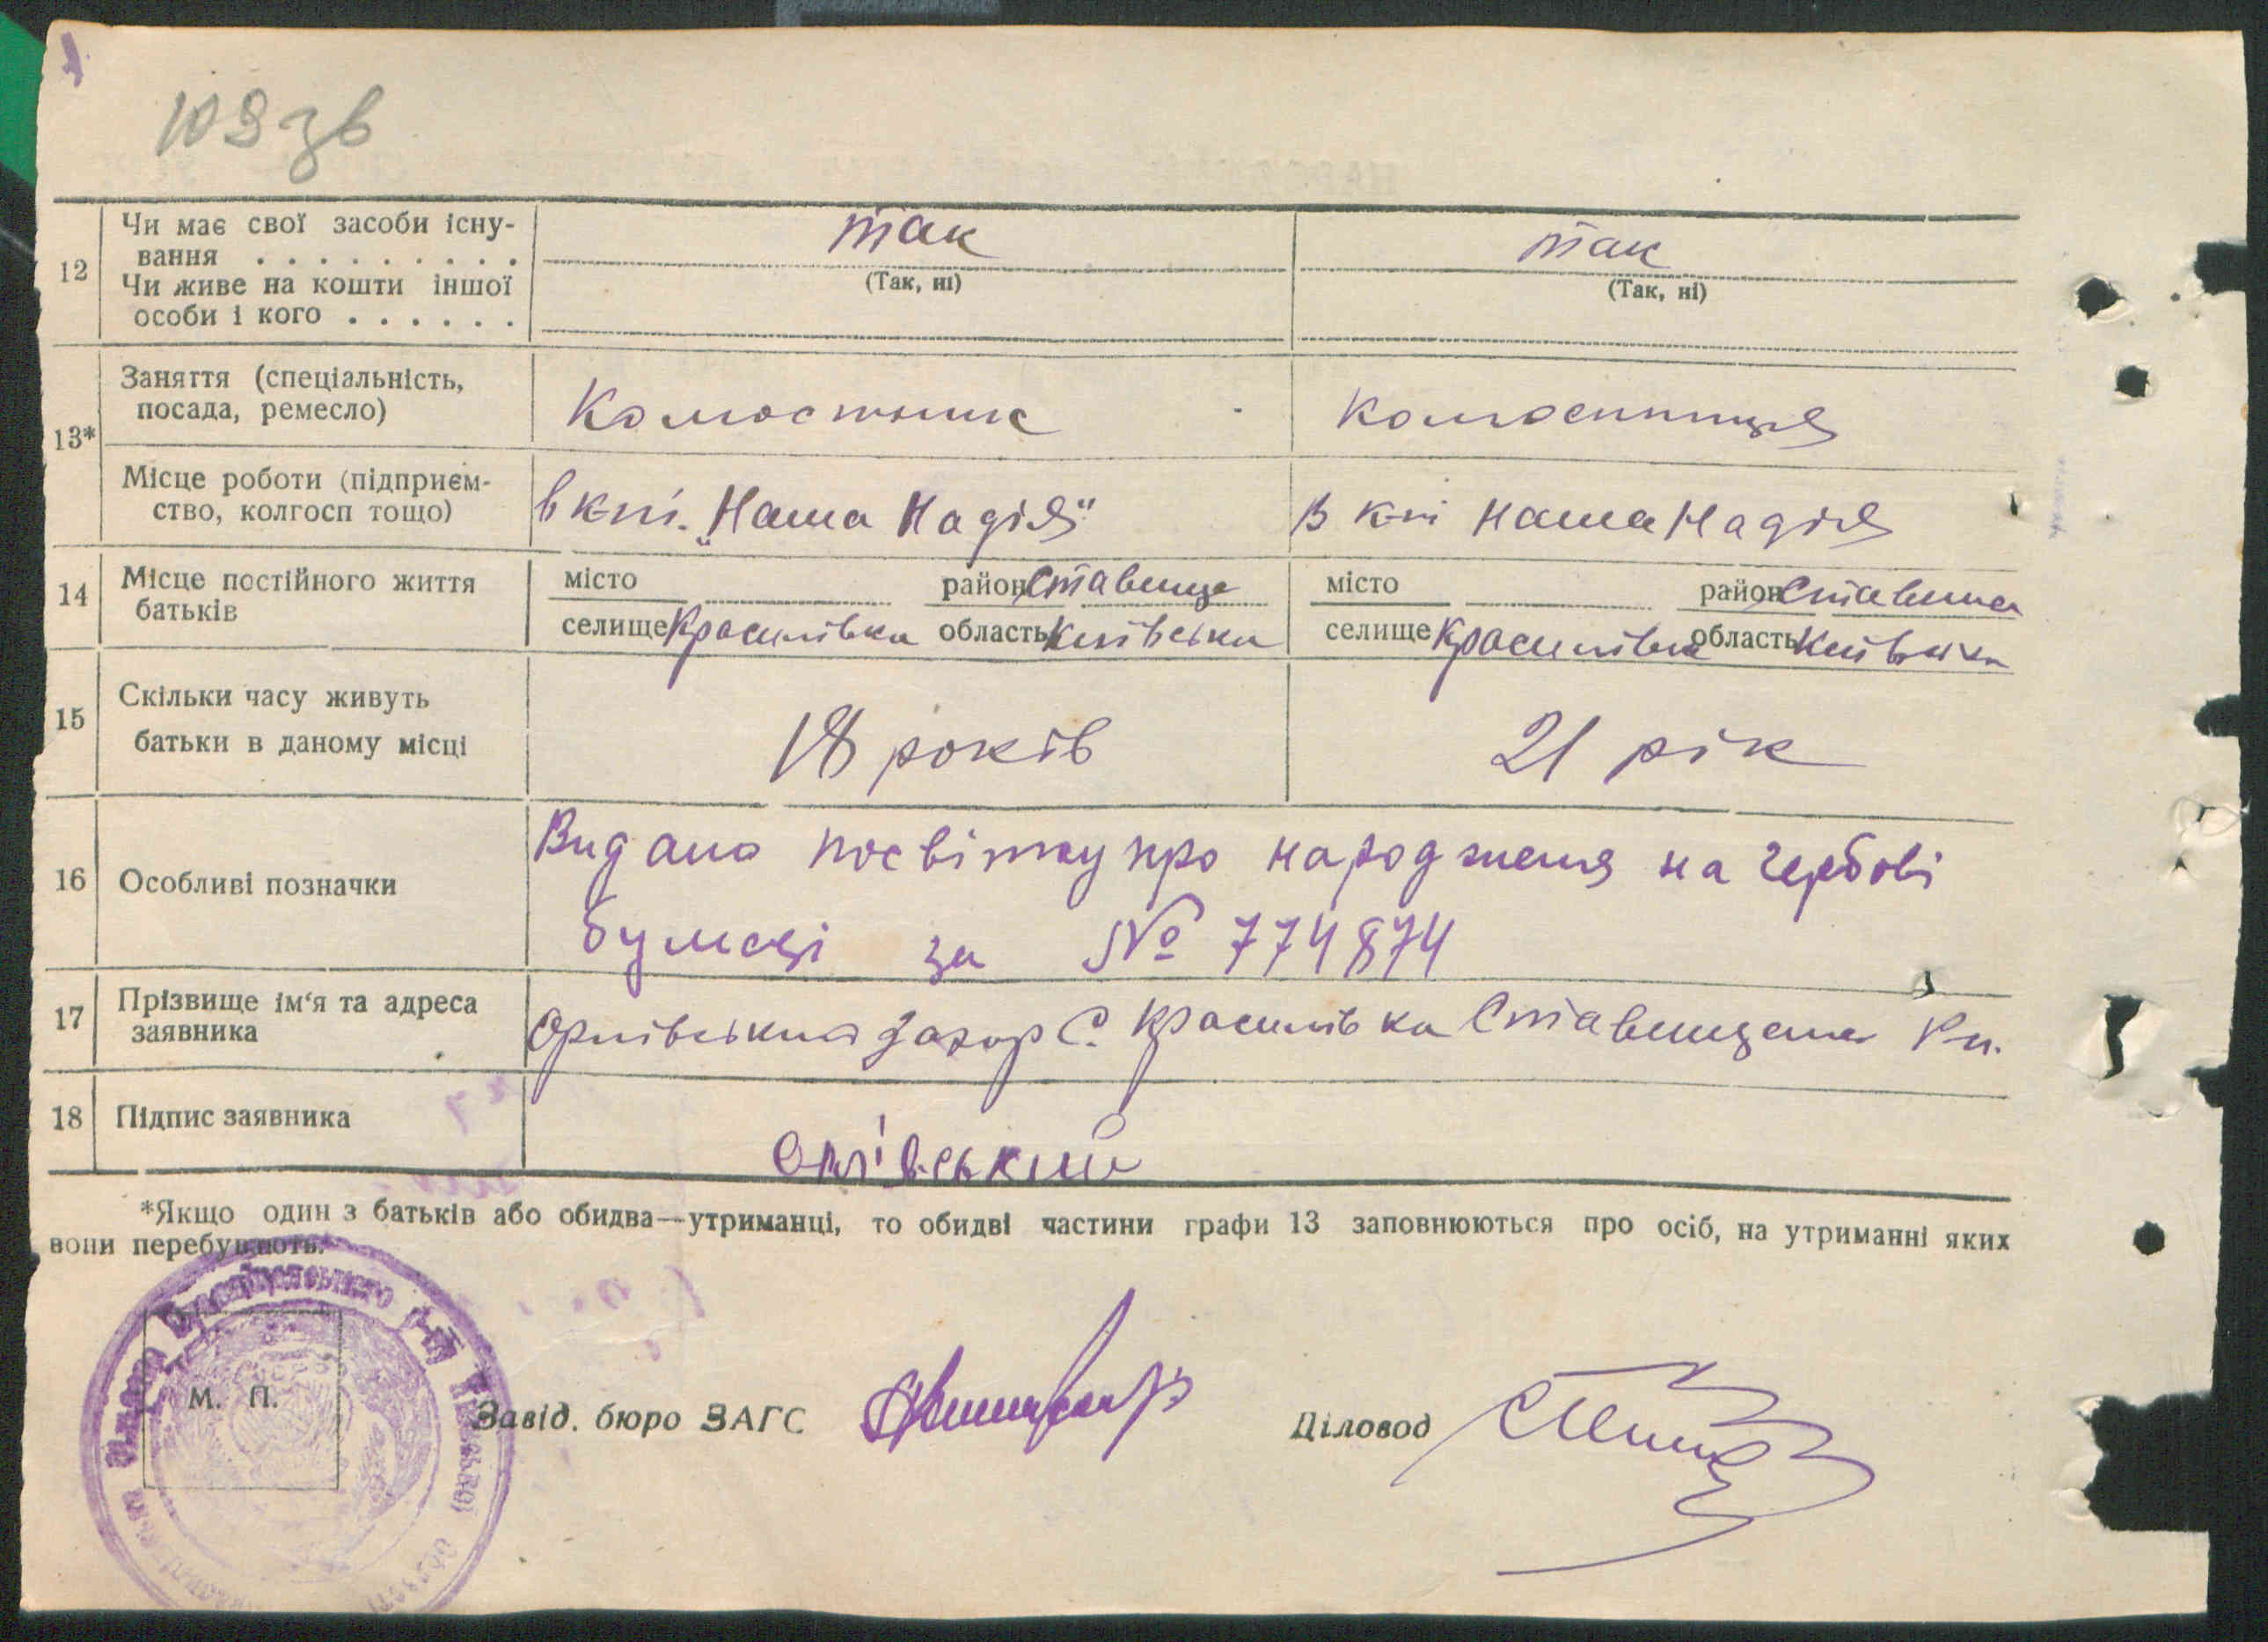 109 зв
12
Чи має свої засоби існу-
вання . . . . . . . . .
так
так
(Так, ні)
(Так, ні)
Чи живе на кошти іншої
особи і кого . . . . . .
13*
Заняття (спеціальність,
посада, ремесло)
Колгоспник
колгоспниця
Місце роботи (підприєм-
ство, колгосп тощо)
в к-пі. „Наша Надія"
в к-пі Наша Надія
14
Місце постійного життя
батьків
місто
район Ставище
місто
район Ставище
селище Красилівка область Київська
селище Красилівка область Київська
15
Скільки часу живуть
батьки в даному місці
18 років
21 рік
16
Особливі позначки
Видано посвітку про народження на гербові
бумазі за № 774874
17
Прізвище ім'я та адреса
заявника
Орлівський Захар С. Красилівка
18
Підпис заявника
Орлівський
*Якщо один з батьків або обидва—утриманці, то обидві частини графи 13 заповнюються про осіб, на утриманні яких
вони перебувають.
М. П.
Завід. бюро ЗАГС
Діловод